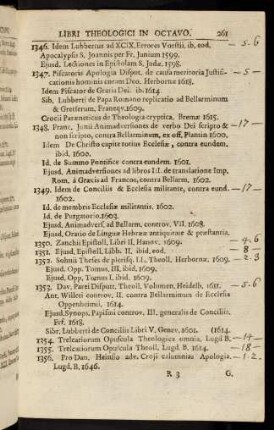 LIBRI THEOLOGICI IN OCTAVO. 261
1346. Idem Lubbertus ad XCIX. Errores Vorstii. ib. eod. — 5.6
Apocalypsis S. Joannis per Fr. Junium 1599.
Ejusd. Lectiones in Epistolam S. Judæ. 1598.
1347. Piscatoris Apologia Disput. de causa meritoria Justifi- — 5 —
cationis hominis coram Deo. Herbornæ 1618.
Idem Piscator de Gratia Dei. ib. 1614.
Sib. Lubberti de Papa Romano replicatio ad Bellarminum
& Gretserum, Franeq. 1609.
Crocii Paræneticus de Theologia cryptica. Bremæ 1615.
1348. Franc. Junii Animadversiones de verbo Dei scripto & — 17 —
non scripto, contra Bellarminum, ex off. Plantin 1600.
Idem De Christo capite totius Ecclesiæ, contra eundem.
ibid. 1600.
Id. de Summo Pontifice contra eundem. 1601.
Ejusd. Animadversiones ad libros III. de translatione Imp.
Rom. à Græcis ad Francos, contra Bellarm. 1602.
1349. Idem de Conciliis & Ecclesia militante, contra eund. — 17 —
1602.
Id. de membris Ecclesiæ militantis. 1602.
Id. de Purgatorio. 1603.
Ejusd. Animadvers. ad Bellarm. controv. VII. 1608.
Ejusd. Oratio de Linguæ Hebrææ antiquitate & præstantia.
1350. Zanchii Epistoll. Libri II, Hanov. 1609. — 9.6
1351. Ejusd. Epistoll. Libb. II, ibid. eod. — 8 —
1352. Sohnii Theses de plerisq. LL. Theoll. Herbornæ. 1609. — 2.3
Ejusd. Opp. Tomus, III, ibid. 1609.
Ejusd. Opp. Tomus I, ibid. 1609.
1353. Dav. Parei Disput. Theoll. Volumen. Heidelb. 1611. — 5.6
Ant. Willeti controv. II. contra Bellarminum de Ecclesia
Oppenheimii. 1614.
Ejusd. Synops. Papismi controv. III, generalis de Conciliis.
Fcf. 1618.
Sibr. Lubberti de Conciliis Libri V. Genev. 1601. (1614.
1354. Trelcatiorum Opuscula Theologica omnia, Lugd B. — 14 —
1355. Trelcatiorum Opuscula Theoll. Lugd B. 1614. — 18 —
1356. Pro Dan. Hainsio adv. Croji calumnias Apologia. — 1.2
Lugd. B. 1646.
R 3 G.